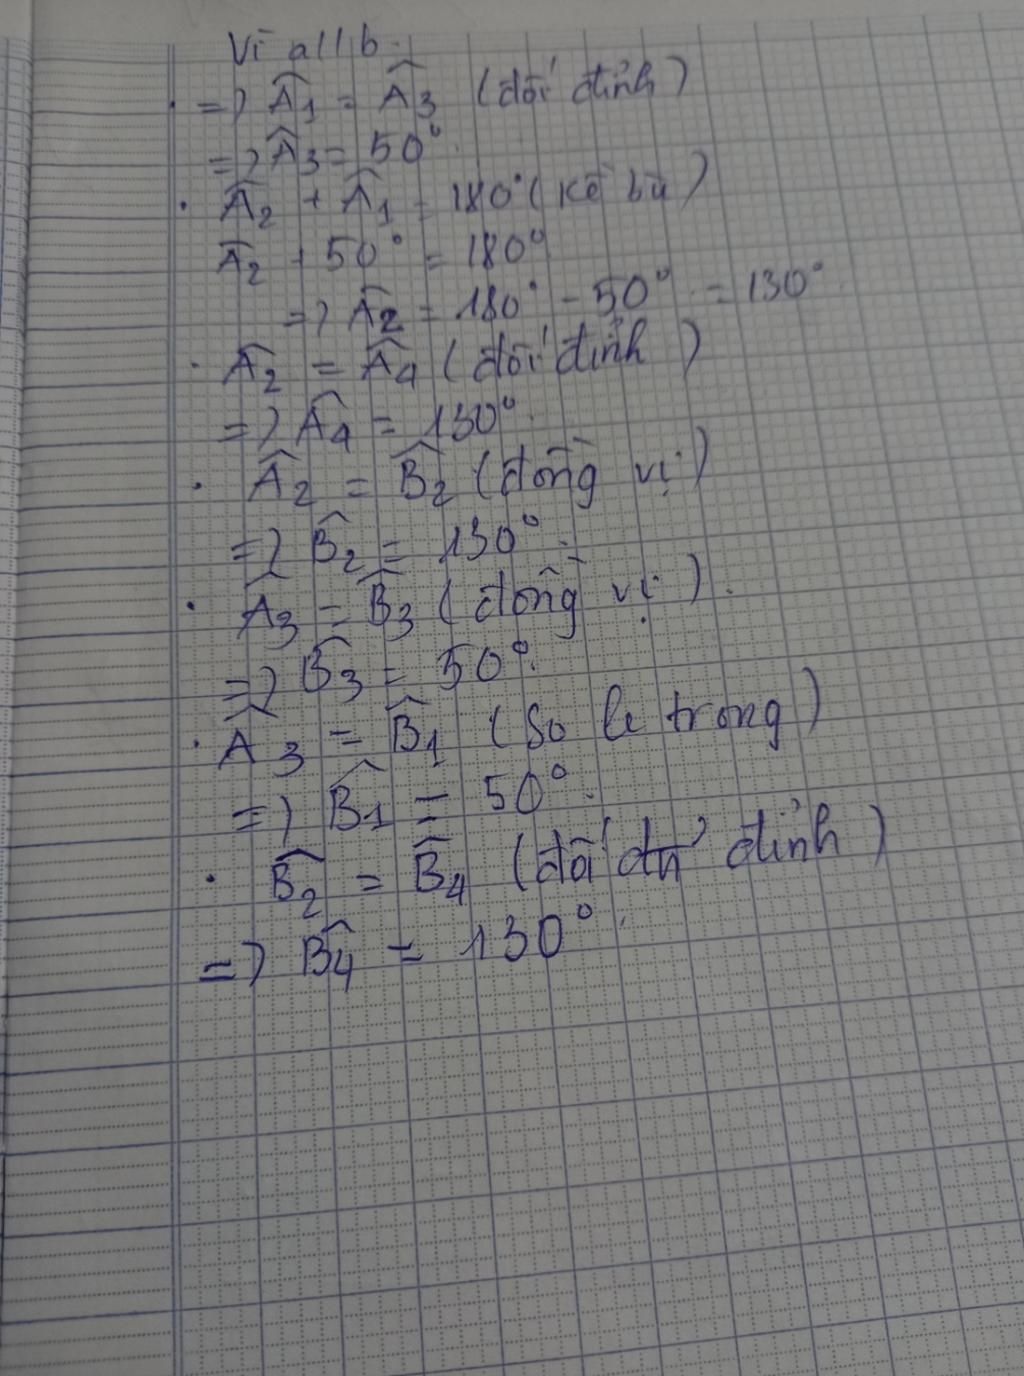 Vì a//b.
· => Â1 = Â3 (đối đỉnh)
=> Â3 = 50°.
· Â2 + Â1 = 180° (kề bù)
Â2 + 50° = 180°
=> Â2 = 180° - 50° = 130°
· Â2 = Â4 (đối đỉnh)
=> Â4 = 130°.
· Â2 = B̂2 (đồng vị)
=> B̂2 = 130°.
· Â3 = B̂3 (đồng vị).
=> B̂3 = 50°.
· Â3 = B̂1 (So le trong)
=> B̂1 = 50°.
· B̂2 = B̂4 (đối đỉnh)
=> B̂4 = 130°.